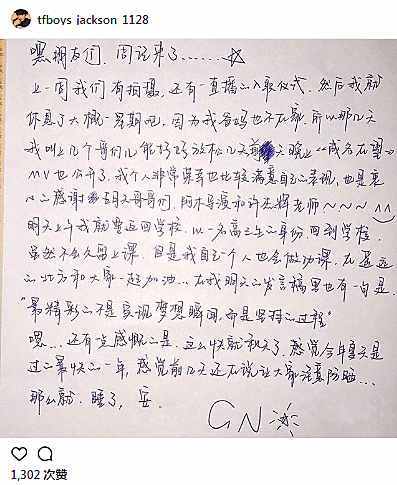 tfboys_jackson_1128
嘿朋友们,周记来了......☆
上一周我们有拍摄,还有一直播的入驻仪式,然后我就
休息了大概一星期吧,因为我爸妈也不在家,所以那几天
我叫上几个哥们儿能好好放松几天 天晚上《成名在望》
MV也公开了,我个人非常 也比较满意自己的表现,也是衷
心的感谢五月天哥哥们,阿木导演和许光辉老师~~~
明天上午我就要返回学校,以一名高三生的身份回到学校,
虽然不会久留上课,但是我自己个人也会做功课,在遥远
的北方和大家一起加油...在我明天的发言稿里也有一句是:
"最精彩的不是实现梦想瞬间,而是坚持的过程"
嗯...还有一点感慨的是,这么快就秋天了,感觉今年夏天是
过的最快的一年,感觉前几天还在说让大家注意防晒...
那么就,睡了,安
GN
1,302 次赞